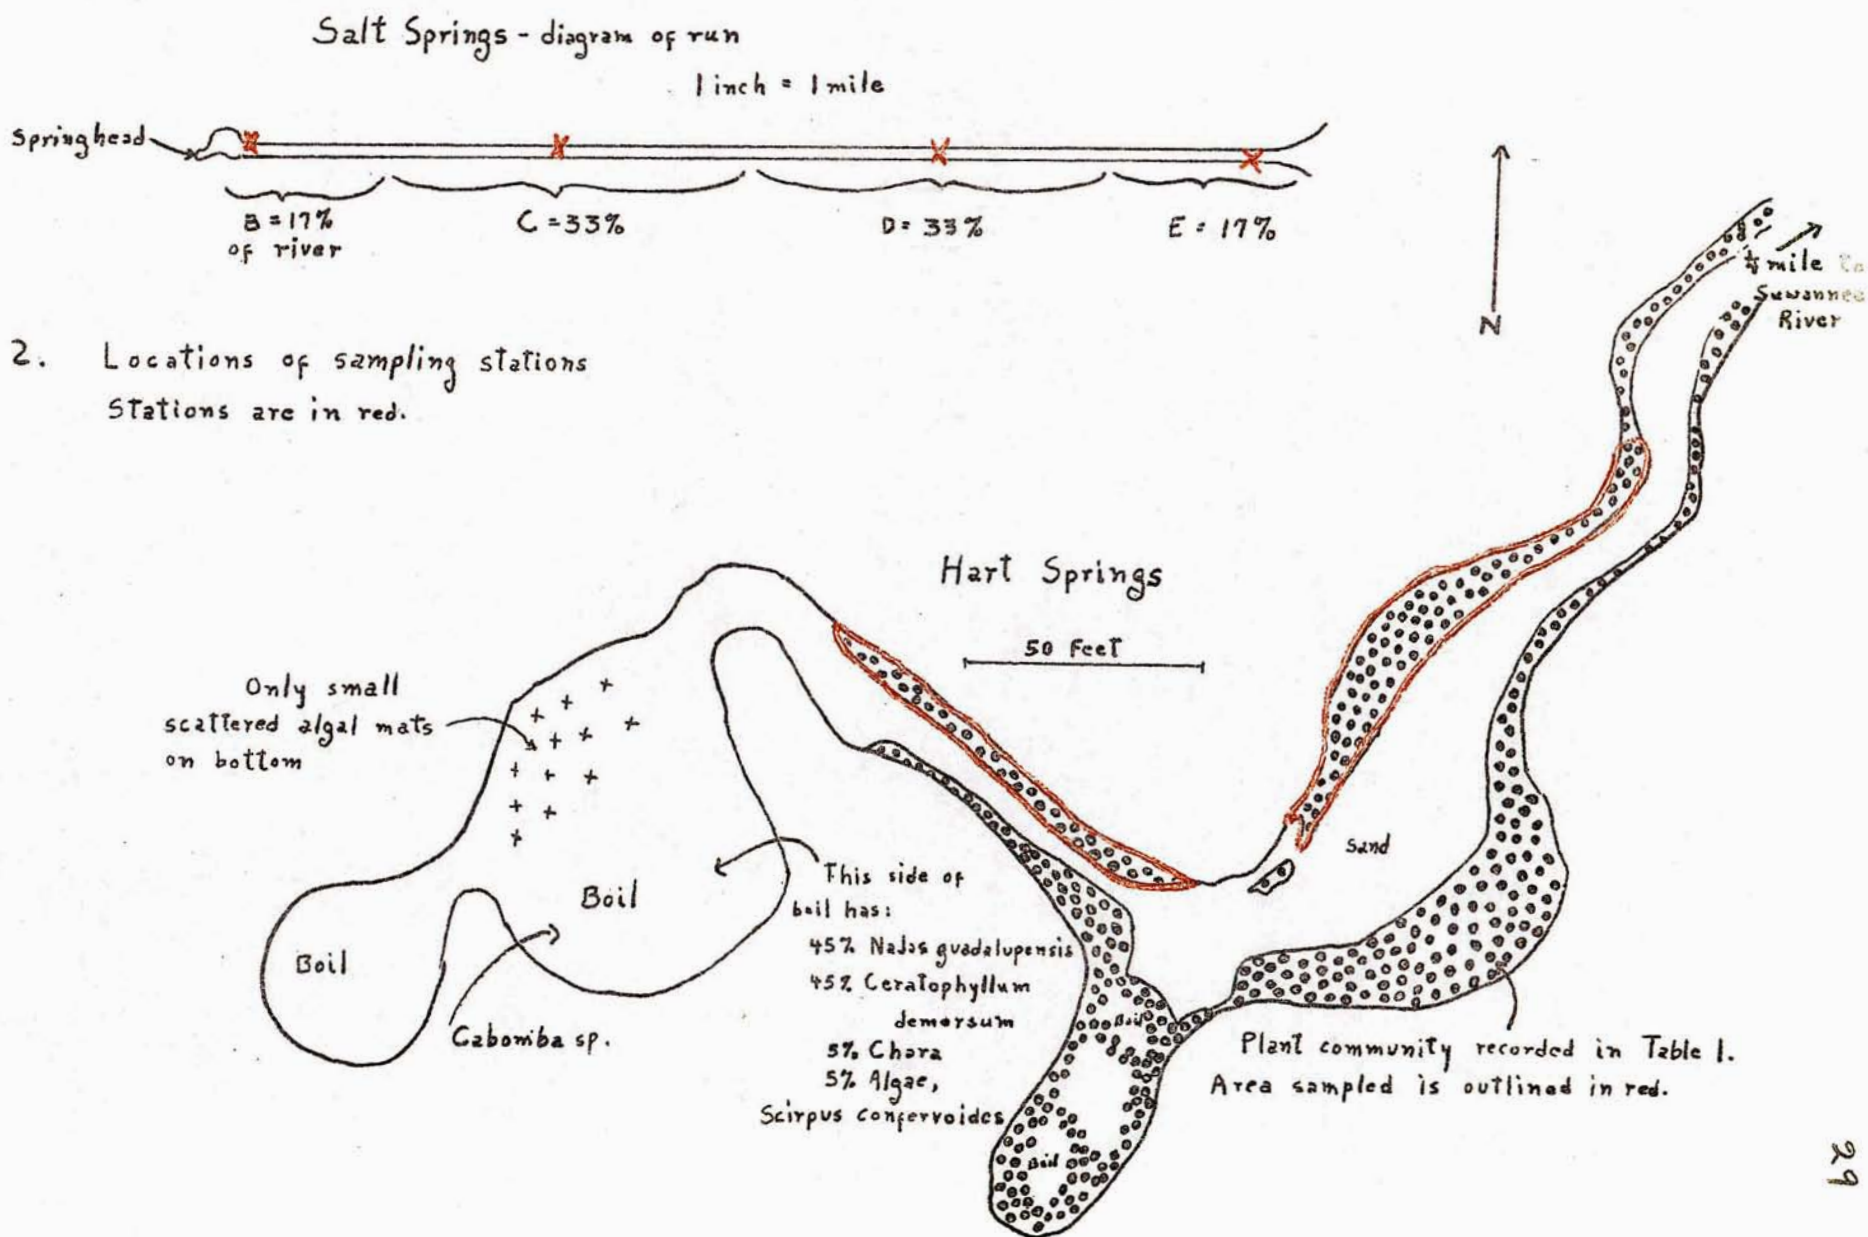 Salt Springs - diagram of run
1 inch = 1 mile
Springhead
B = 17%
of river
C = 33%
D = 33%
E = 17%
N
1/4 mile to
Suwannee
River
2. Locations of sampling stations
Stations are in red.
Hart Springs
50 Feet
Only small
scattered algal mats
on bottom
Sand
Boil
Boil
This side of
boil has:
45% Najas guadalupensis
45% Ceratophyllum
demersum
5% Chara
5% Algae,
Scirpus confervoides
Cabomba sp.
Boil
Boil
Plant community recorded in Table 1.
Area sampled is outlined in red.
29